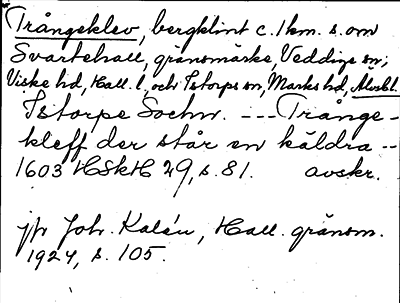 Trångeklev, bergklint c. 1 km. s. om
Svartehall, gränsmärke, Veddinge sn,
Viske hd, Hall. l., och Istorps sn, Marks hd, Älvsb. l.
Istorps Sochn. --- Trånge-
kleff der står en käldra --
1603 HSkH 29, s. 81. avskr.
jfr Joh. Kalén, Hall. gränsm.
1924, s. 105.